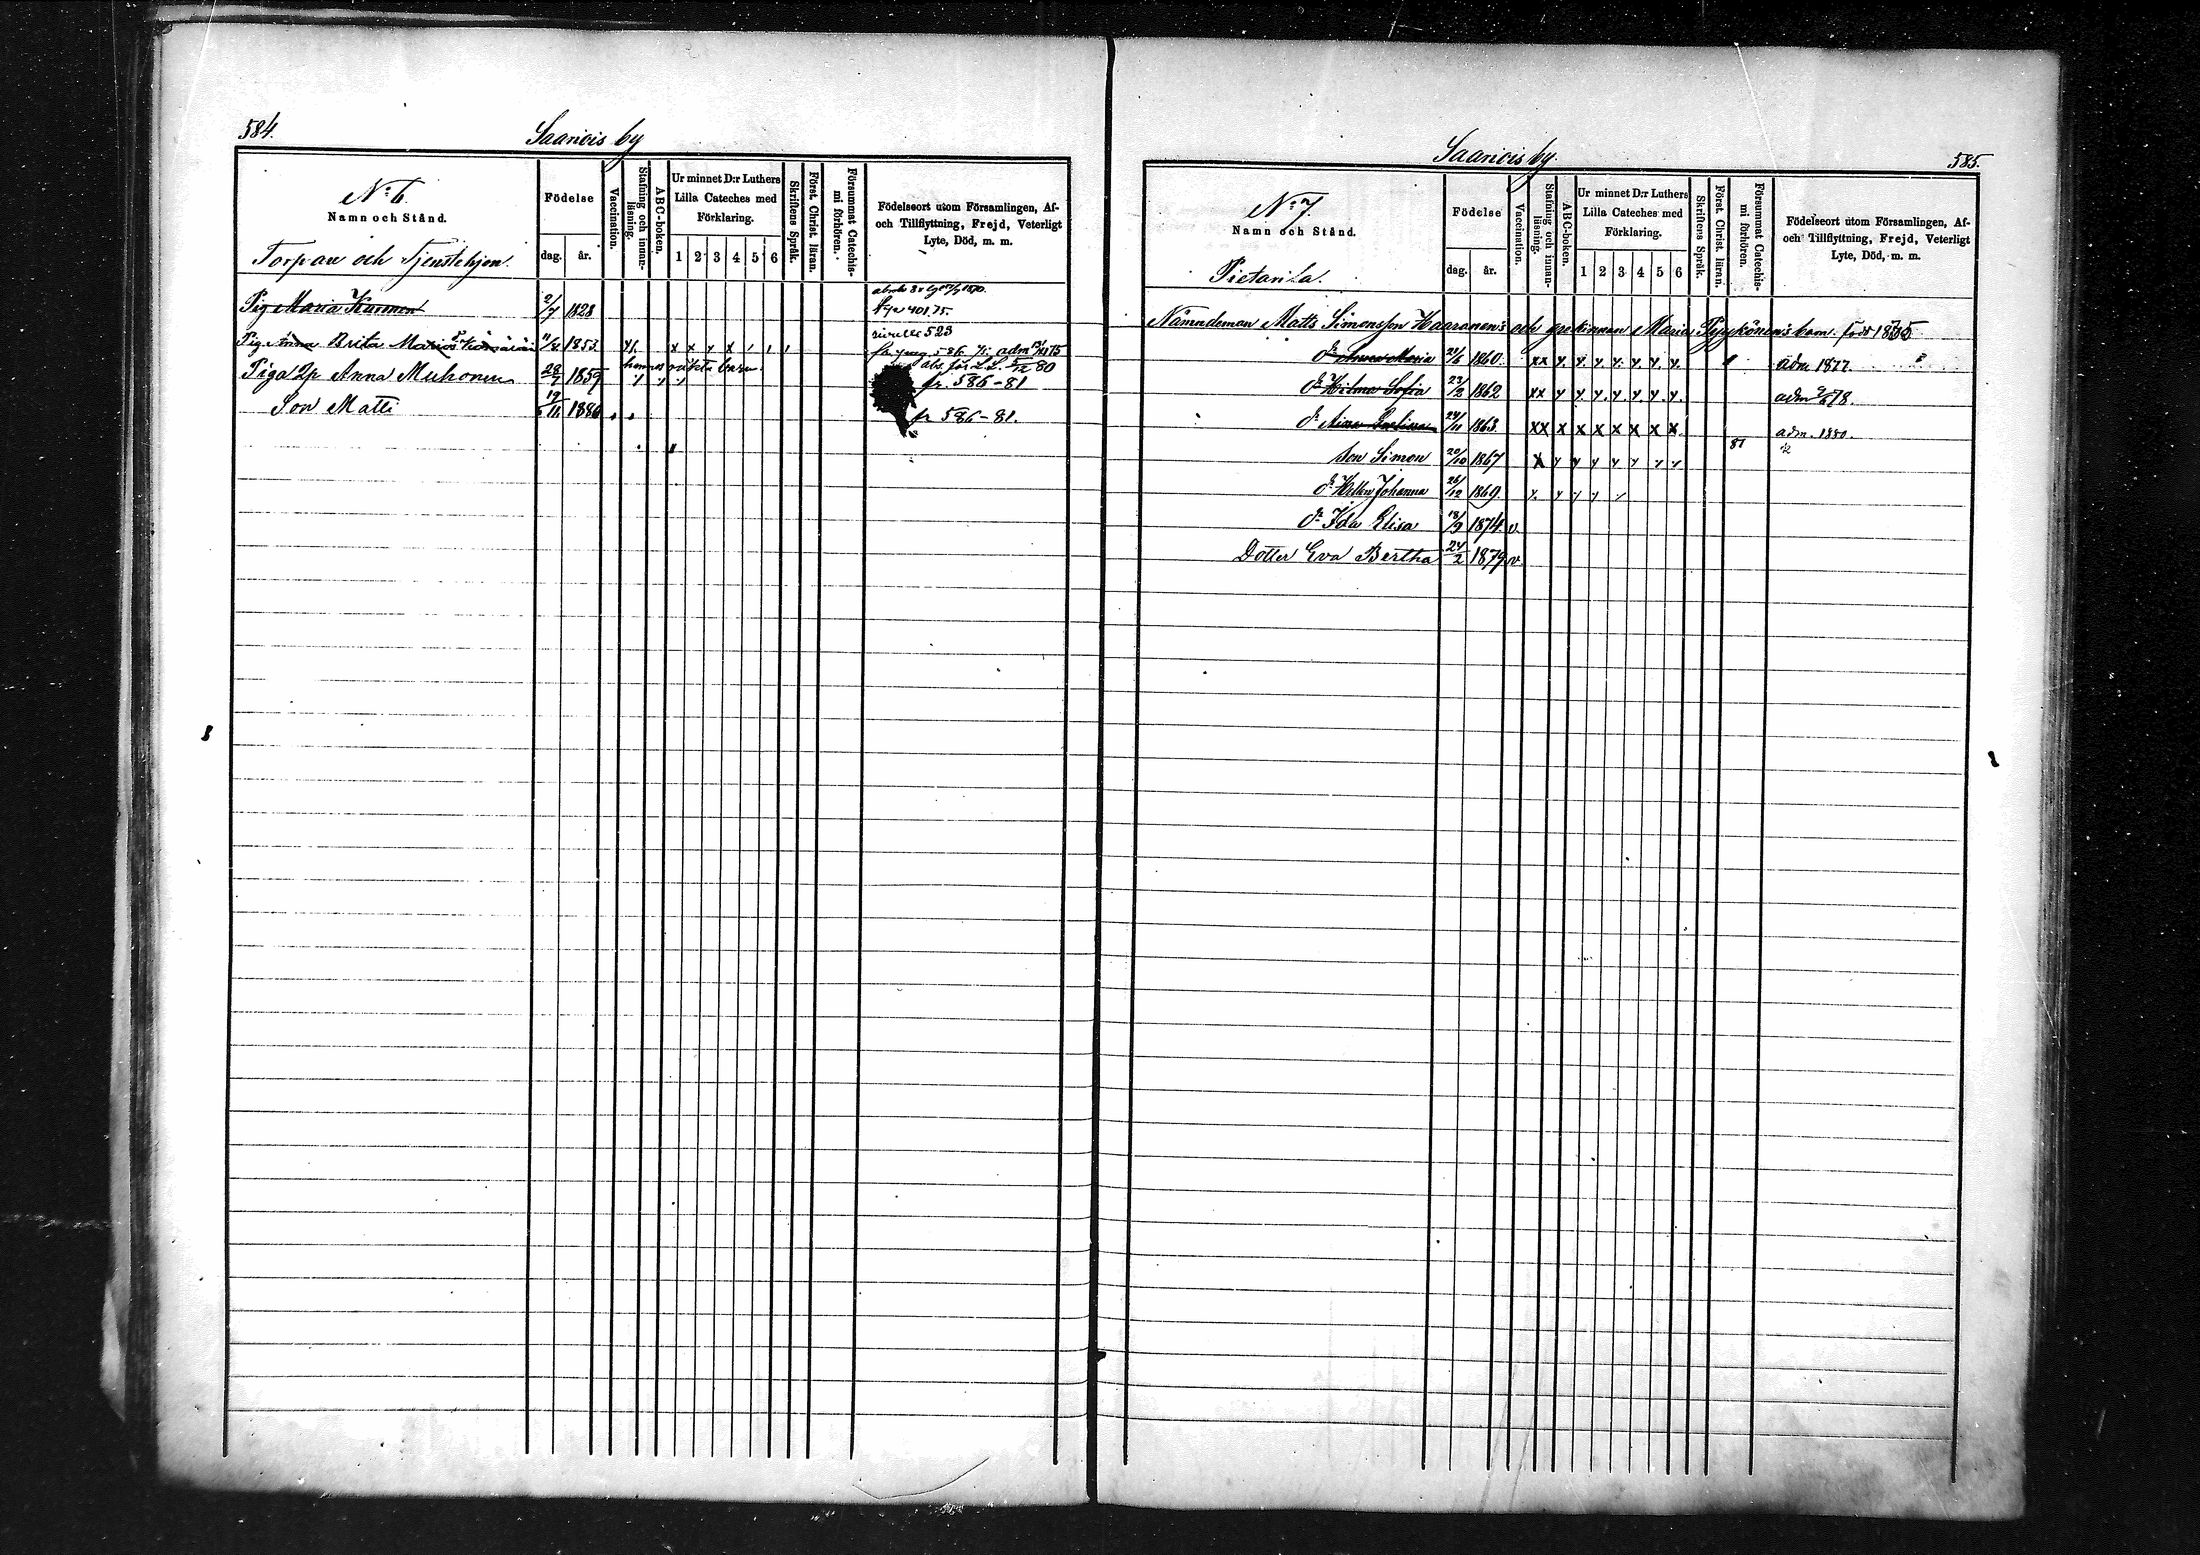 584.
Saariois by
No 6.
Namn och Stånd.
Torpare och Tjenstehjon.
Födelse
dag.
år.
Vaccination.
Stafning och innan-
läsning.
ABC-boken.
Ur minnet D:r Luthers
Lilla Cateches med
Förklaring.
1 2 3 4 5 6
Skriftens Språk.
Först. Christ. läran.
Försummat Catechis-
mi förhören.
Födelseort utom Församlingen, Af-
och Tillflyttning, Frejd, Veterligt
Lyte, Död, m. m.
Pig Maria 2/7 1828 401.75.
Pig. Anna Brita 11/8 1853. x x y x 523
586 adm
Piga 2p Anna Muhonen 28/7 1859 abs. för L.L. 5/12 80
fr. 586-81
Son Matti 19/11 1880 fr 586-81.
Saariois by.
585.
No 7.
Namn och Stånd.
Pietarila.
Födelse
dag.
år.
Vaccination.
Stafning och innan-
läsning.
ABC-boken.
Ur minnet D:r Luthers
Lilla Cateches med
Förklaring.
1 2 3 4 5 6
Skriftens Språk.
Först. Christ. läran.
Försummat Catechis-
mi förhören.
Födelseort utom Församlingen, Af-
och Tillflyttning, Frejd, Veterligt
Lyte, Död, m. m.
Nämndeman Matts Simonsson Haaranen's och qvinnan Maria Pyykönen's barn. född 1835
dr Anna Maria 20/6 1860. xx y. y. y. y. y. y. adm 1877.
dr Hilma Sofia 23/2 1862 xx y y. y. y. y. y. adm 78.
dr 24/11 1863. xx x x x x x x x. adm. 1880.
Son Simon 20/10 1867 x y y y y y y 81
dr Hellen Johanna 26/12 1869. y. y y y
dr Ida Elisa 18/9 1874. v.
Dotter Eva Bertha 24/2 1879. v.